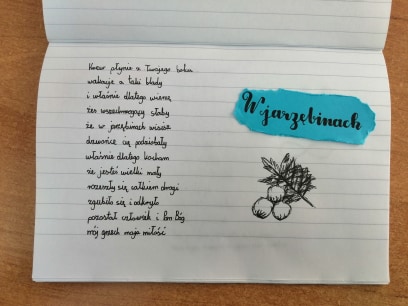 Krew płynie z Twojego boku
wakacje a taki blady
i właśnie dlatego wierzę
żeś wszechmogący słaby
że w jarzębinach wisisz
dzwońce cię podziobały
właśnie dlatego kocham
że jesteś wielki mały
rozeszły się całkiem drogi
zgubiło się i odkryło
pozostał człowiek i Pan Bóg
mój grzech moja miłość
W jarzębinach